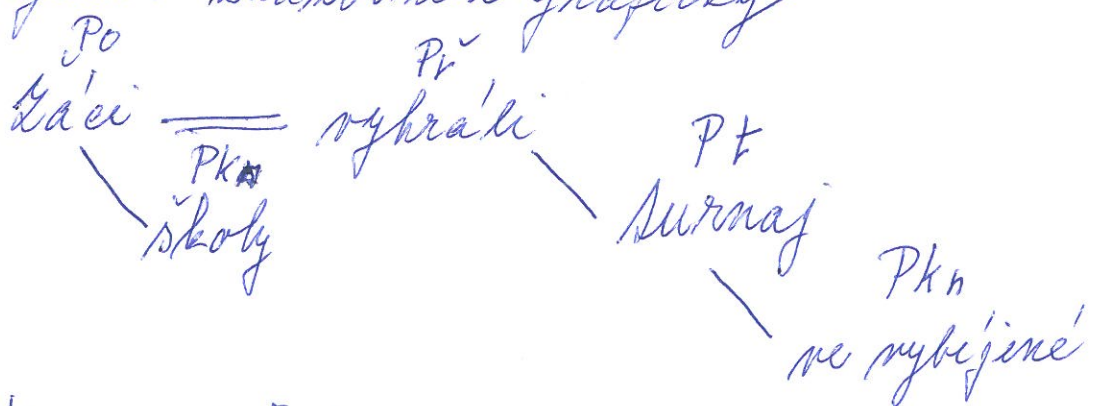 graficky
Po
Př
Žáci vyhráli
Pt
Pkn
školy
turnaj
Pkn
ve vybíjené